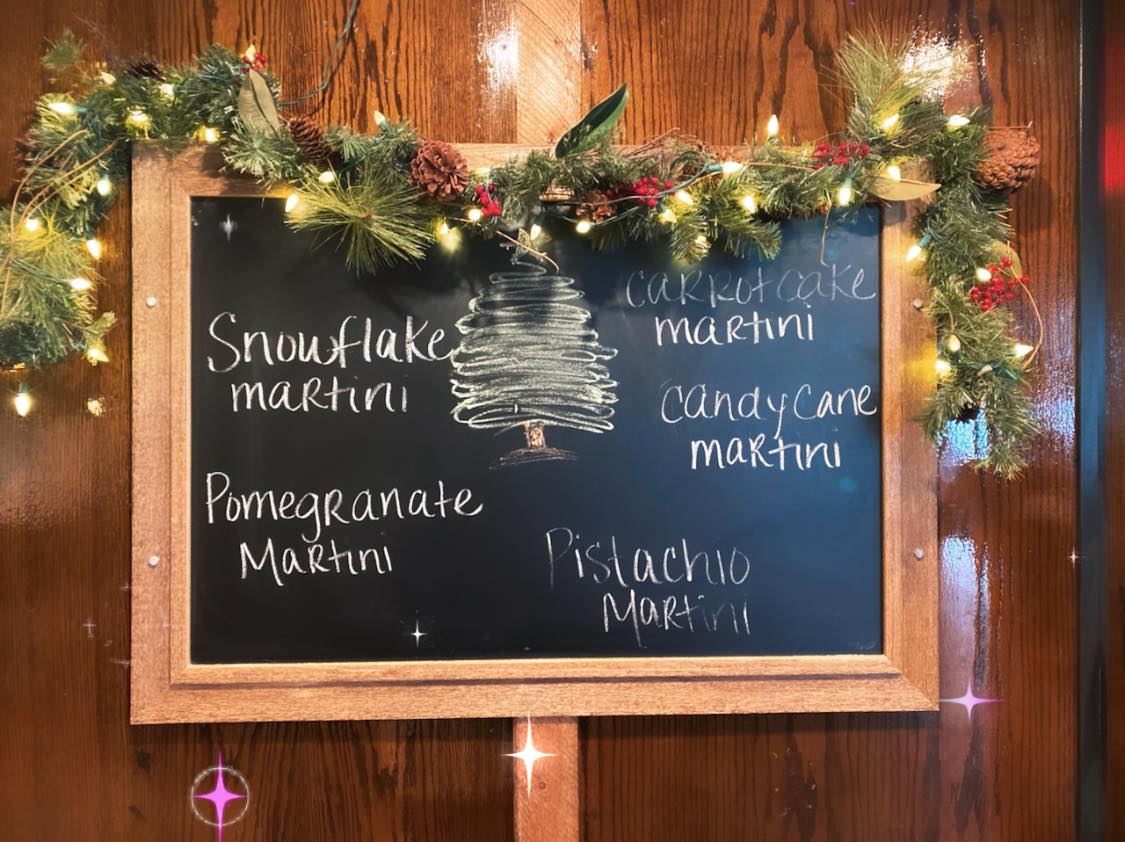 Snowflake
martini
Pomegranate
Martini
carrotcake
martini
candy cane
martini
Pistachio
Martini